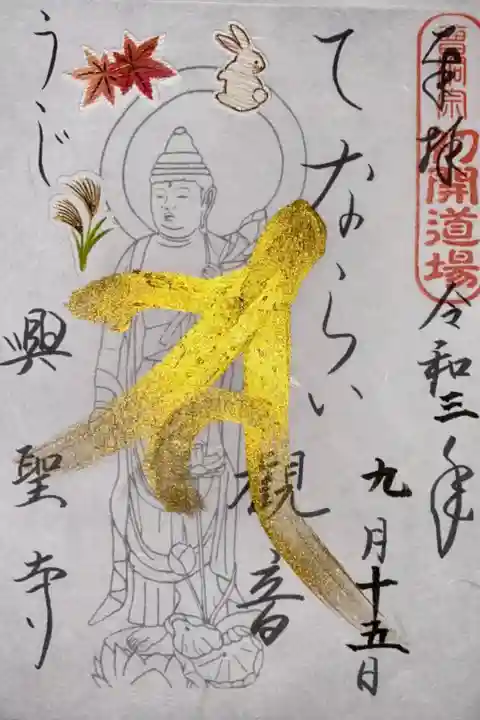 曹洞宗初開道場
奉拝
令和三年
九月十五日
てならい
観音
うじ
興聖寺